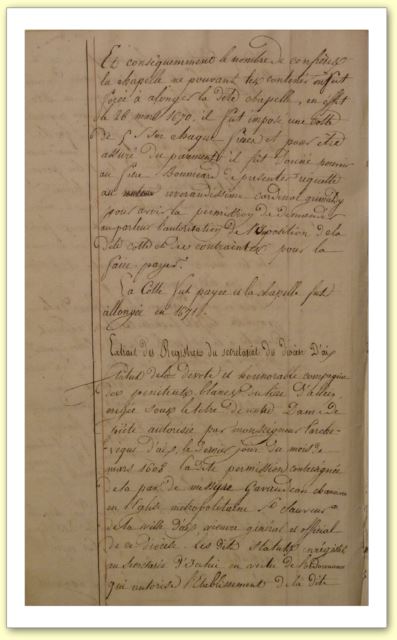 Et conséquemment le nombre de confrères
la chapelle ne pouvant les contenir on fut
forcé à alonger la dite chapelle, en effet
le 28 mars 1670. il fut imposé une cotte
de sur chaque frère et pour être
assuré du payement il fut donné pouvoir
au frère de presenter requette
au reverandissime cardinal grimaldy
pour avoir la permission de demander
au parlem l'autorisation de l'Imposition de la
dite cotte et de contraintes pour la
faire payer.
La Cotte fut payée et la chapelle fut
allongée en 1671.
Extrait des Registres du secretariat du diocèse D'aix
Statuts de la devote et honnorable compagnie
des penitents blancs du lieu D'allen,
erigée sous le titre de notre Dame de
pieté autorisée par monseigneur l'arche-
veque d'aix, le dernier jour du mois de
mars 1608 la dite permission contresignée
de la part de messire chanoine
en l'Eglise metropolitaine St. Sauveur
de la ville d'aix vicaire general et official
de ce diocèse. les dits statuts enregistrés
au secretariat en vertu de l'ordonnance
qui autorise l'Etablissement de la dite